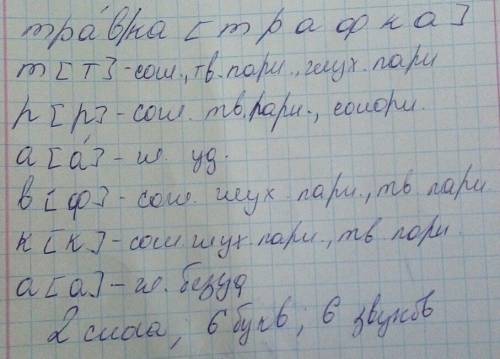 тра́в/ка [трафка]
т [т] - согл., тв. парн., глух. парн
р [р] - согл. тв. парн., сонорн.
а [а́] - гл. уд.
в [ф] - согл. глух. парн., тв. парн
к [к] - согл. глух. парн., тв. парн.
а [а] - гл. безуд
2 слога; 6 букв; 6 звуков